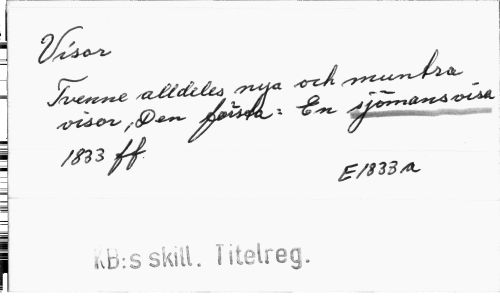 Visor
Tvenne alldeles nya och muntra
visor, Den första: En sjömansvisa
1833 ff.
E1833a
KB:s skill. Titelreg.